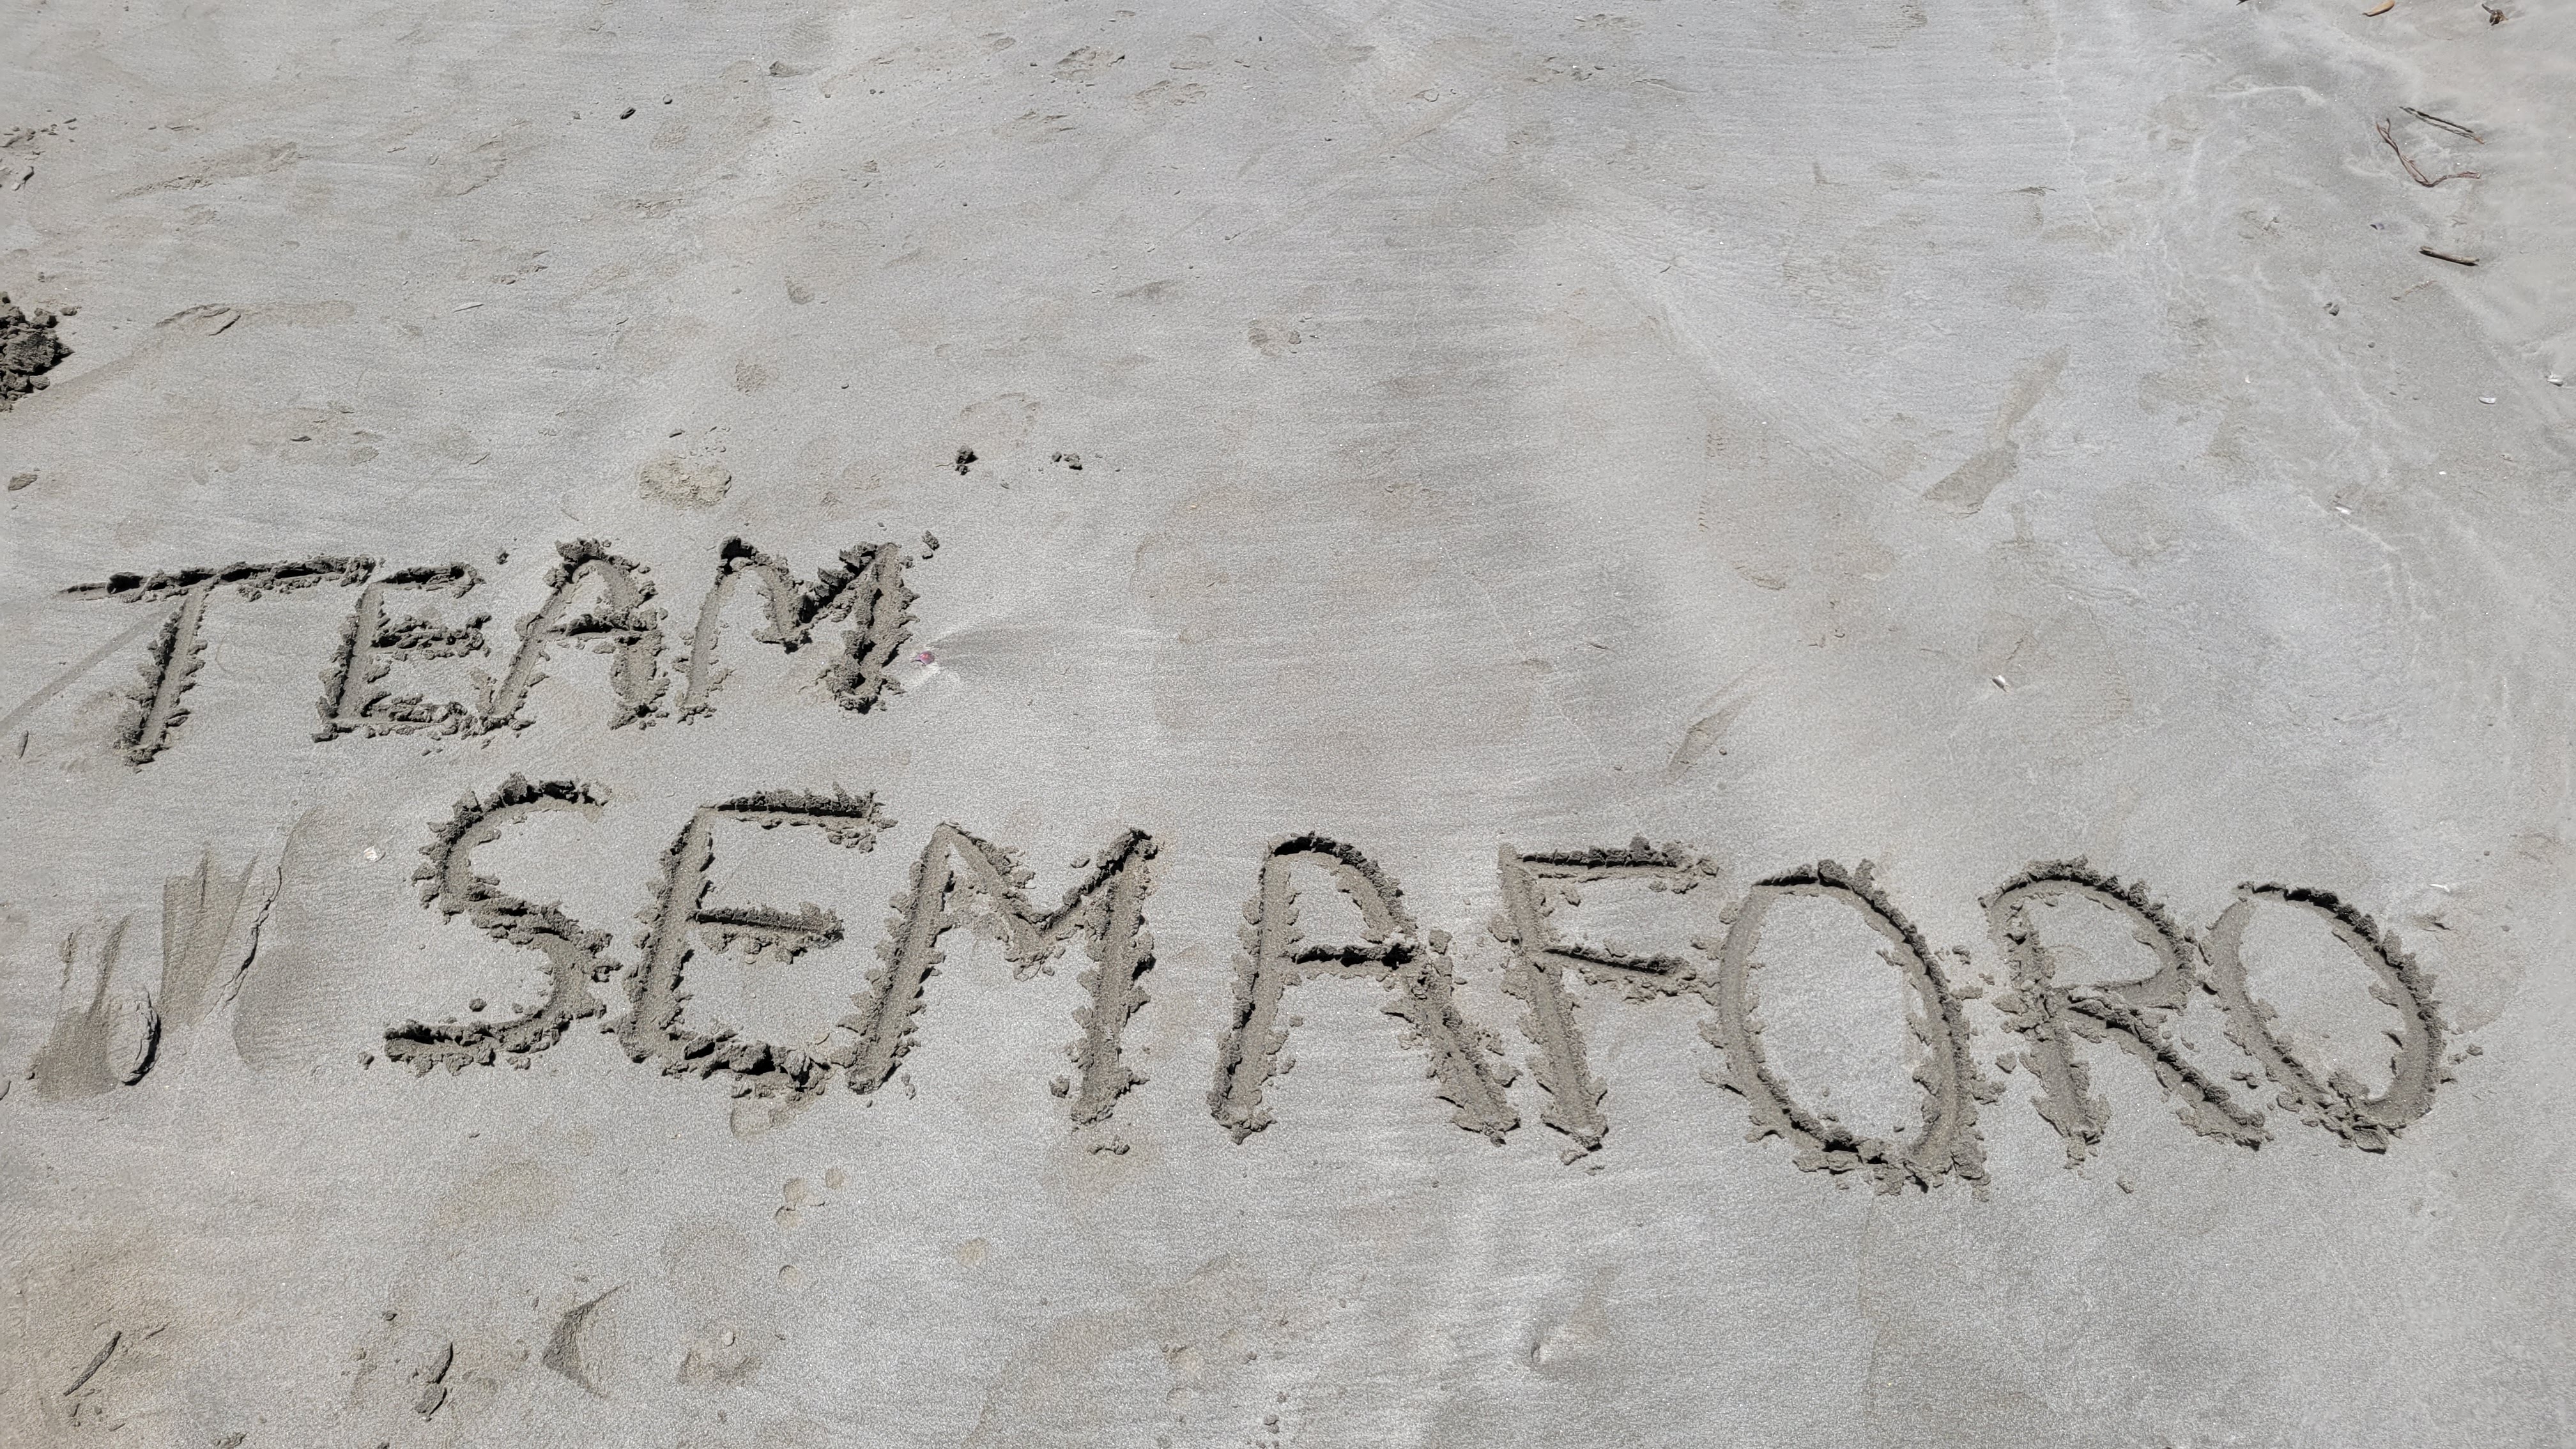 TEAM
SEMAFORO